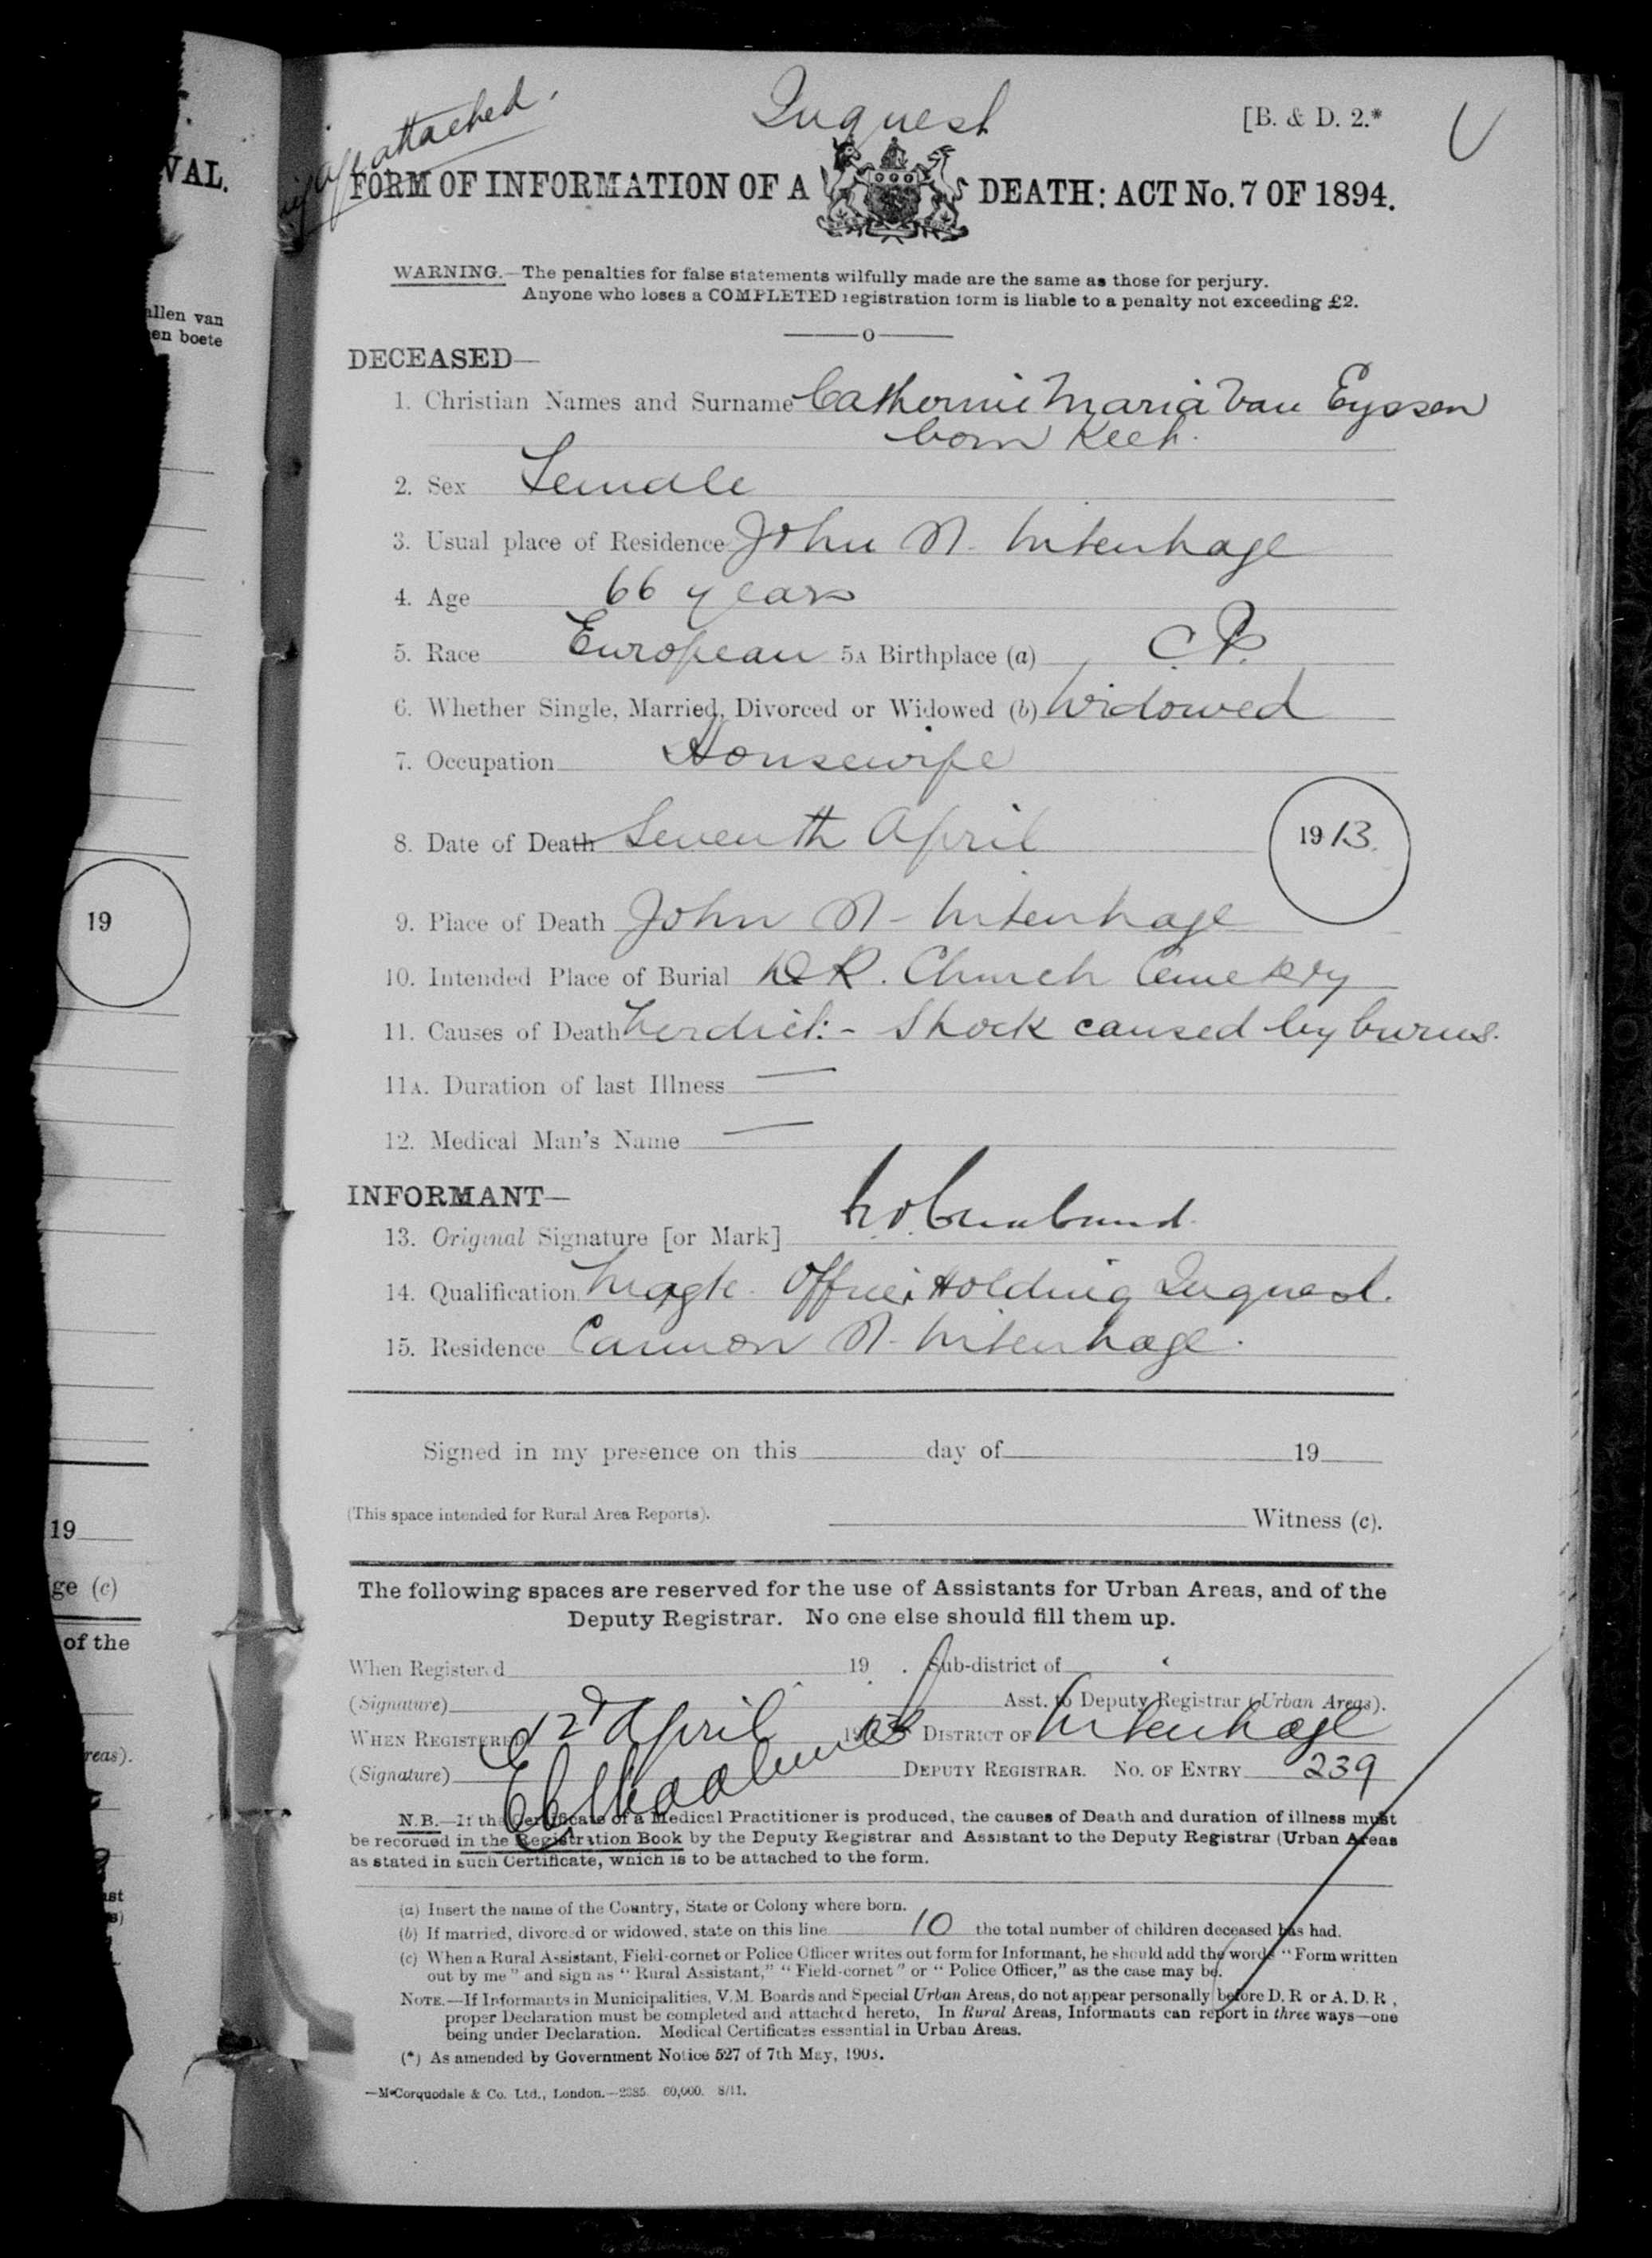 attached.
Inquest
[B. & D. 2.*
FORM OF INFORMATION OF A DEATH: ACT No. 7 OF 1894.
WARNING.—The penalties for false statements wilfully made are the same as those for perjury.
Anyone who loses a COMPLETED registration form is liable to a penalty not exceeding £2.
DECEASED—
1. Christian Names and Surname Catherine Maria Van Eyssen
born Keeh.
2. Sex Female
3. Usual place of Residence John St. Uitenhage
4. Age 66 years
5. Race European 5A Birthplace (a) C.P.
6. Whether Single, Married, Divorced or Widowed (b) Widowed
7. Occupation Housewife
8. Date of Death Seventh April 1913.
9. Place of Death John St - Uitenhage
10. Intended Place of Burial D.R. Church Cemetery
11. Causes of Death Verdict:- Shock caused by burns.
11A. Duration of last Illness —
12. Medical Man's Name —
INFORMANT—
13. Original Signature [or Mark]
14. Qualification Magte. Officer Holding Inquest.
15. Residence Cannon St. Uitenhage.
Signed in my presence on this day of 19
(This space intended for Rural Area Reports). Witness (c).
The following spaces are reserved for the use of Assistants for Urban Areas, and of the
Deputy Registrar. No one else should fill them up.
When Registered 19 . Sub-district of
(Signature) Asst. to Deputy Registrar (Urban Areas).
WHEN REGISTERED 12 April 1913 DISTRICT OF Uitenhage
(Signature) DEPUTY REGISTRAR. NO. OF ENTRY 239
N.B.—If the Certificate of a Medical Practitioner is produced, the causes of Death and duration of illness must
be recorded in the Registration Book by the Deputy Registrar and Assistant to the Deputy Registrar (Urban Areas
as stated in such Certificate, which is to be attached to the form.
(a) Insert the name of the Country, State or Colony where born.
(b) If married, divorced or widowed, state on this line 10 the total number of children deceased has had.
(c) When a Rural Assistant, Field-cornet or Police Officer writes out form for Informant, he should add the words "Form written
out by me" and sign as "Rural Assistant," "Field-cornet" or "Police Officer," as the case may be.
NOTE.—If Informants in Municipalities, V.M. Boards and Special Urban Areas, do not appear personally before D.R or A.D.R.,
proper Declaration must be completed and attached hereto, In Rural Areas, Informants can report in three ways—one
being under Declaration. Medical Certificates essential in Urban Areas.
(*) As amended by Government Notice 527 of 7th May, 1903.
—McCorquodale & Co. Ltd., London.—2385. 60,000. 8/11.
VAL.
allen van
en boete
19
19
ge (c)
of the
reas).